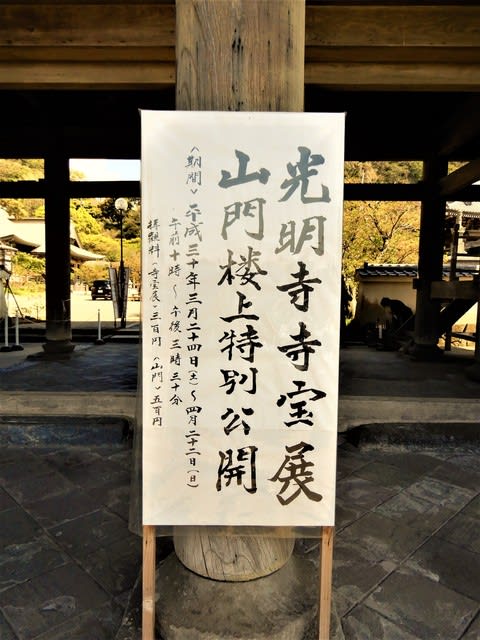 光明寺寺宝展
山門楼上特別公開
〈期間〉平成三十年三月二十四日(土)〜四月二十二日(日)
午前十時〜午後三時三十分
拝観料〈寺宝展〉三百円〈山門〉五百円